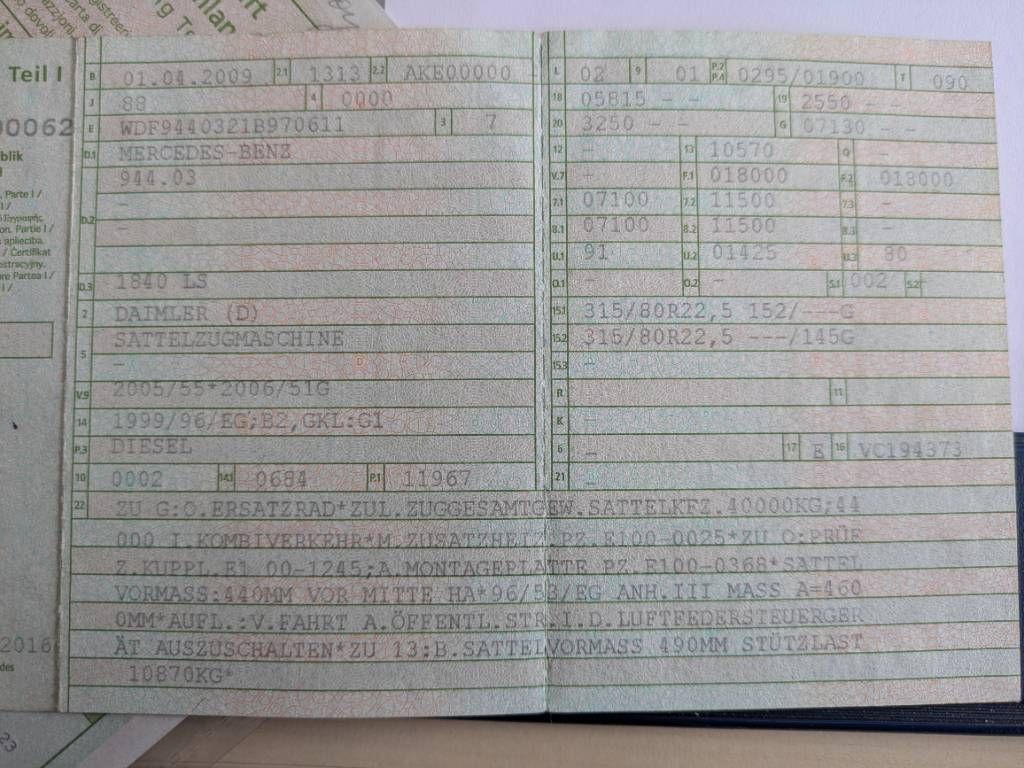 Teil I
B 01.04.2009 2.1 1313 2.2 AKE00000 L 02 9 01 P.2 P.4 0295/01900 T 090
J 88 4 0000 18 05815 - - 19 2550 - -
E WDF9440321B970611 3 7 20 3250 - - G 07130 - -
D.1 MERCEDES-BENZ 12 - 13 10570 Q -
944.03 V.7 - F.1 018000 F.2 018000
D.2 - 7.1 07100 7.2 11500 7.3 -
- 8.1 07100 8.2 11500 8.3 -
U.1 91 U.2 01425 U.3 80
D.3 1840 LS O.1 - O.2 - S.1 002 S.2 -
2 DAIMLER (D) 15.1 315/80R22,5 152/---G
5 SATTELZUGMASCHINE 15.2 315/80R22,5 ---/145G
- 15.3 -
V.9 2005/55*2006/51G R 11
14 1999/96/EG;B2,GKL:G1 K
P.3 DIESEL 6 - 17 E 16 VC194373
10 0002 14.1 0684 P.1 11967 21 -
22 ZU G:O.ERSATZRAD*ZUL.ZUGGESAMTGEW.SATTELKFZ.40000KG;44
000 I.KOMBIVERKEHR*M.ZUSATZHEIZ.PZ.E100-0025*ZU O:PRÜF
Z.KUPPL.E1 00-1245;A.MONTAGEPLATTE PZ.E100-0368*SATTEL
VORMASS:440MM VOR MITTE HA*96/53/EG ANH.III MASS A=460
0MM*AUFL.:V.FAHRT A.ÖFFENTL.STR.I.D.LUFTFEDERSTEUERGER
ÄT AUSZUSCHALTEN*ZU 13:B.SATTELVORMASS 490MM STÜTZLAST
10870KG*
00062
blik
Parte I /
on. Partie I /
apliecība.
/ Certifikat
estracyjny.
re Partea I /
2016
des
23